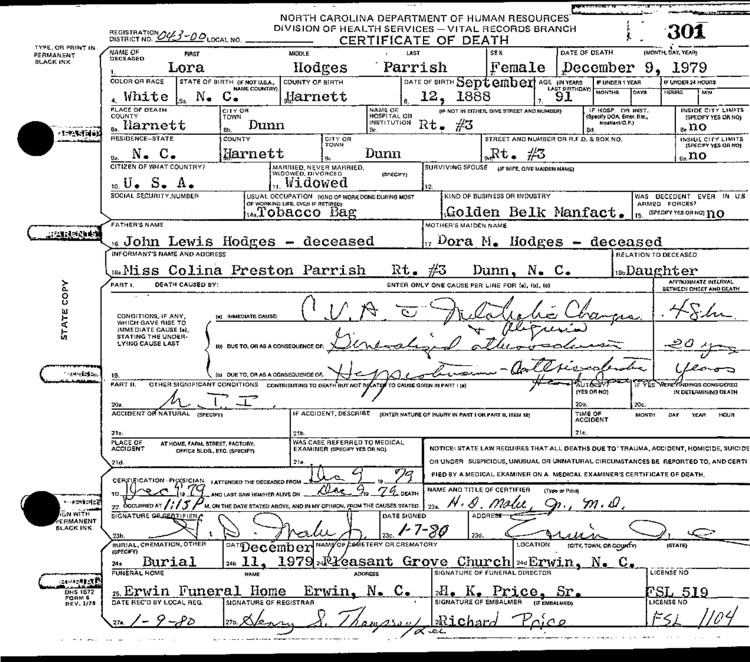 NORTH CAROLINA DEPARTMENT OF HUMAN RESOURCES
DIVISION OF HEALTH SERVICES — VITAL RECORDS BRANCH
CERTIFICATE OF DEATH
301
REGISTRATION DISTRICT NO. 043-00 LOCAL NO.
TYPE, OR PRINT IN PERMANENT BLACK INK
NAME OF DECEASED FIRST MIDDLE LAST SEX DATE OF DEATH (MONTH, DAY, YEAR)
1. Lora Hodges Parrish Female December 9, 1979
COLOR OR RACE STATE OF BIRTH (IF NOT U.S.A., NAME COUNTRY) COUNTY OF BIRTH DATE OF BIRTH AGE (IN YEARS LAST BIRTHDAY) IF UNDER 1 YEAR MONTHS DAYS IF UNDER 24 HOURS HOURS MIN
4. White 5a. N. C. Harnett September 12, 1888 7. 91
PLACE OF DEATH COUNTY CITY OR TOWN NAME OF HOSPITAL OR INSTITUTION (IF NOT IN EITHER, GIVE STREET AND NUMBER) IF HOSP. OR INST. (Specify DOA, Emer. Rm., Inpatient O.P.) INSIDE CITY LIMITS (SPECIFY YES OR NO)
8a. Harnett 8b. Dunn 8c. Rt. #3 8d. 8e. no
RESIDENCE—STATE COUNTY CITY OR TOWN STREET AND NUMBER OR R.F.D. & BOX NO. INSIDE CITY LIMITS (SPECIFY YES OR NO)
9a. N. C. Harnett 9c. Dunn Rt. #3 no
CITIZEN OF WHAT COUNTRY? MARRIED, NEVER MARRIED, WIDOWED, DIVORCED (SPECIFY) SURVIVING SPOUSE (IF WIFE, GIVE MAIDEN NAME)
10. U. S. A. 11. Widowed 12.
SOCIAL SECURITY NUMBER USUAL OCCUPATION (KIND OF WORK DONE DURING MOST OF WORKING LIFE, EVEN IF RETIRED) KIND OF BUSINESS OR INDUSTRY WAS DECEDENT EVER IN U.S ARMED FORCES?
14a. Tobacco Bag Golden Belk Manfact. 15. (SPECIFY YES OR NO) no
PARENTS
FATHER'S NAME MOTHER'S MAIDEN NAME
16 John Lewis Hodges — deceased 17 Dora M. Hodges — deceased
INFORMANT'S NAME AND ADDRESS RELATION TO DECEASED
18a. Miss Colina Preston Parrish Rt. #3 Dunn, N. C. 18b. Daughter
STATE COPY
PART I. DEATH CAUSED BY: ENTER ONLY ONE CAUSE PER LINE FOR (a), (b), (c) APPROXIMATE INTERVAL BETWEEN ONSET AND DEATH
CONDITIONS, IF ANY, WHICH GAVE RISE TO IMMEDIATE CAUSE (a), STATING THE UNDERLYING CAUSE LAST
(a) IMMEDIATE CAUSE: C.V.A. c̄ Metabolic Changes 48 hr
(b) DUE TO, OR AS A CONSEQUENCE OF: Generalized 20 yrs
19. (c) DUE TO, OR AS A CONSEQUENCE OF: years
PART II. OTHER SIGNIFICANT CONDITIONS CONTRIBUTING TO DEATH BUT NOT RELATED TO CAUSE GIVEN IN PART I (a) AUTOPSY (YES OR NO) IF YES WERE FINDINGS CONSIDERED IN DETERMINING DEATH
20a. 20b. 20c.
ACCIDENT OR NATURAL (SPECIFY) IF ACCIDENT, DESCRIBE (ENTER NATURE OF INJURY IN PART I OR PART II, ITEM 18) TIME OF ACCIDENT MONTH DAY YEAR HOUR
21a. 21b. 21c.
PLACE OF ACCIDENT AT HOME, FARM, STREET, FACTORY, OFFICE BLDG., ETC. (SPECIFY) WAS CASE REFERRED TO MEDICAL EXAMINER (SPECIFY YES OR NO)
21d. 21e.
NOTICE: STATE LAW REQUIRES THAT ALL DEATHS DUE TO TRAUMA, ACCIDENT, HOMICIDE, SUICIDE
OR UNDER SUSPICIOUS, UNUSUAL OR UNNATURAL CIRCUMSTANCES BE REPORTED TO, AND CERTI
FIED BY A MEDICAL EXAMINER ON A MEDICAL EXAMINER'S CERTIFICATE OF DEATH.
CERTIFICATION-PHYSICIAN: I ATTENDED THE DECEASED FROM Dec 9 19 79
TO Dec 9 19 79 AND LAST SAW HIM/HER ALIVE ON Dec 9, 19 79 DEATH
22. OCCURRED AT 1:15 P M. ON THE DATE STATED ABOVE, AND IN MY OPINION, FROM THE CAUSES STATED.
NAME AND TITLE OF CERTIFIER (Type or Print)
23a. Jr., M.D.
SIGN WITH PERMANENT BLACK INK
SIGNATURE OF CERTIFIER DATE SIGNED ADDRESS
23b. 23c. 1-7-80 23d. Erwin
BURIAL, CREMATION, OTHER (SPECIFY) DATE NAME OF CEMETERY OR CREMATORY LOCATION (CITY, TOWN, OR COUNTY) (STATE)
24a Burial 24b December 11, 1979 Pleasant Grove Church 24d Erwin, N. C.
FUNERAL HOME NAME ADDRESS SIGNATURE OF FUNERAL DIRECTOR LICENSE NO
25. Erwin Funeral Home Erwin, N. C. H. K. Price, Sr. FSL 519
DHS 1872
FORM 6
REV. 1/78
DATE REC'D BY LOCAL REG. SIGNATURE OF REGISTRAR SIGNATURE OF EMBALMER (IF EMBALMED) LICENSE NO
27a. 1-9-80 27b. Henry S. Thompson Richard Price FSL 1104